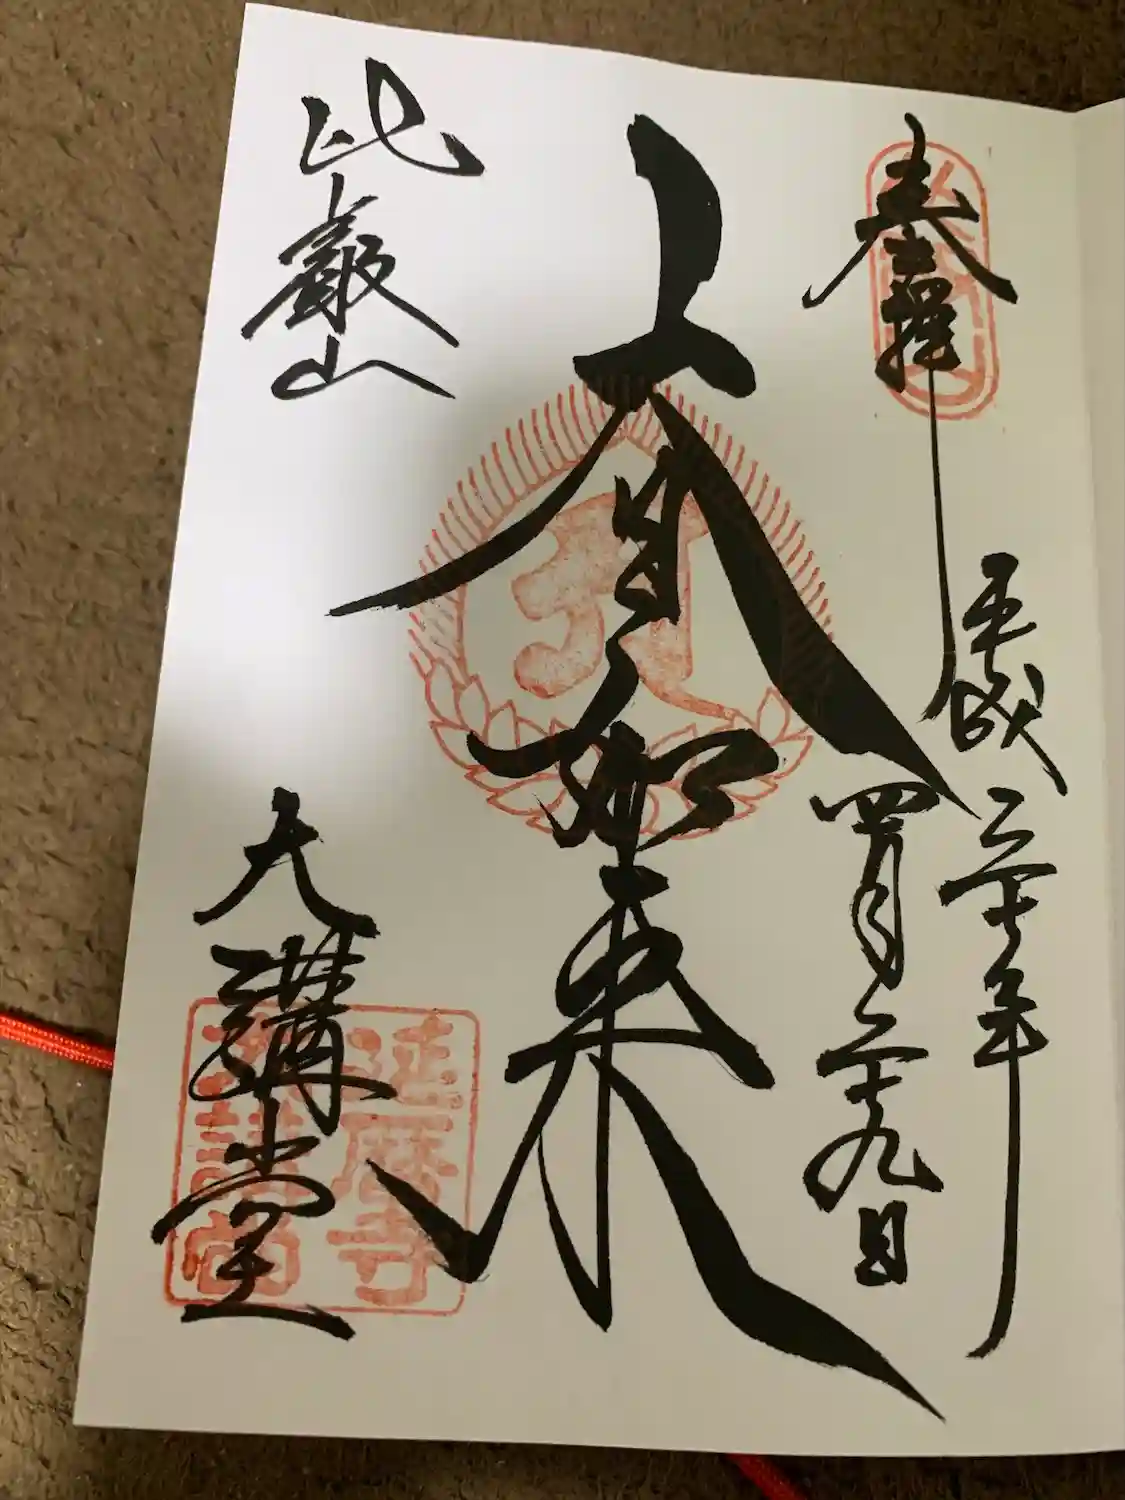 奉拝
平成三十年
四月二十九日
大日如来
比叡山
大講堂
延暦寺